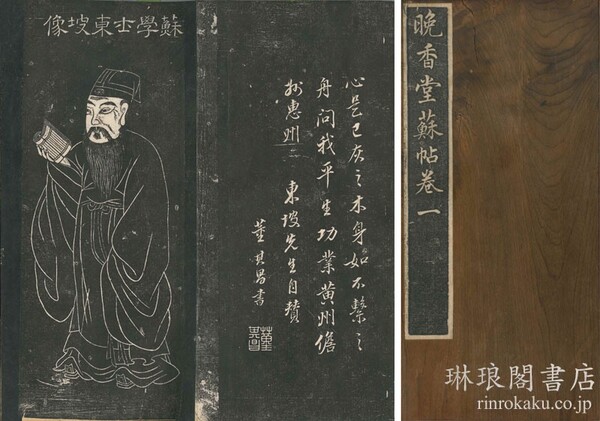 蘇學士東坡像
心是已灰之木身如不繫之
舟問我平生功業黃州儋
州惠州
東坡先生自贊
董其昌書
董其昌
晚香堂蘇帖卷一
琳琅閣書店
rinrokaku.co.jp